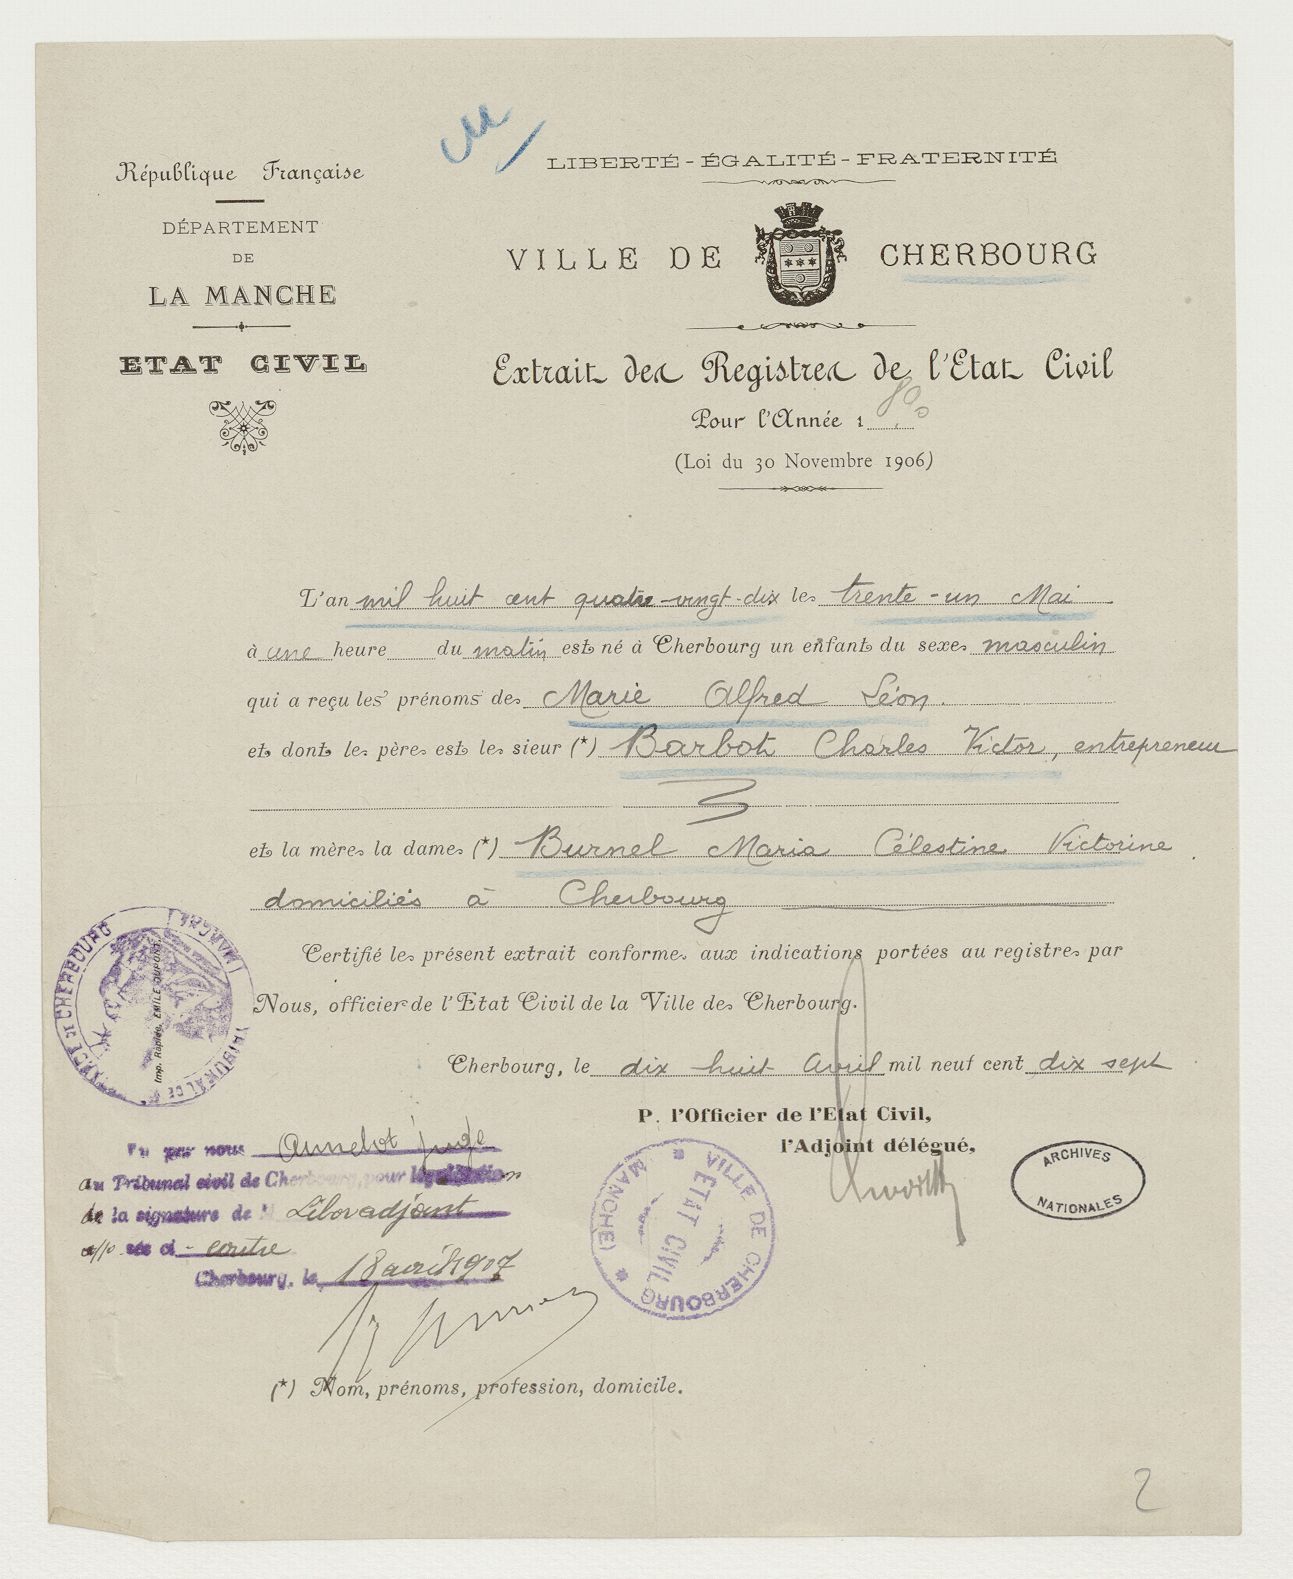 République Française
DÉPARTEMENT
DE
LA MANCHE
ETAT CIVIL
LIBERTÉ - ÉGALITÉ - FRATERNITÉ
VILLE DE CHERBOURG
Extrait des Registres de l'Etat Civil
Pour l'Année 1890
(Loi du 30 Novembre 1906)
L'an mil huit cent quatre-vingt-dix le trente-un Mai
à une heure du matin est né à Cherbourg un enfant du sexe masculin
qui a reçu les prénoms de Marie Alfred Léon.
et dont le père est le sieur (*) Barbot Charles Victor, entrepreneur
et la mère la dame (*) Burnel Maria Célestine Victorine
domiciliés à Cherbourg
Certifié le présent extrait conforme aux indications portées au registre par
Nous, officier de l'Etat Civil de la Ville de Cherbourg.
Cherbourg, le dix huit Avril mil neuf cent dix sept
P. l'Officier de l'Etat Civil,
l'Adjoint délégué,
TRIBUNAL DE CHERBOURG (MANCHE)
Imp. Rapide, EMILE DUPONT
Vu par nous juge
au Tribunal civil de Cherbourg, pour légalisation
de la signature de M adjoint
apposée ci-contre
Cherbourg, le 18 avril 1917
VILLE DE CHERBOURG
(MANCHE)
ETAT CIVIL
ARCHIVES
NATIONALES
(*) Nom, prénoms, profession, domicile.
2